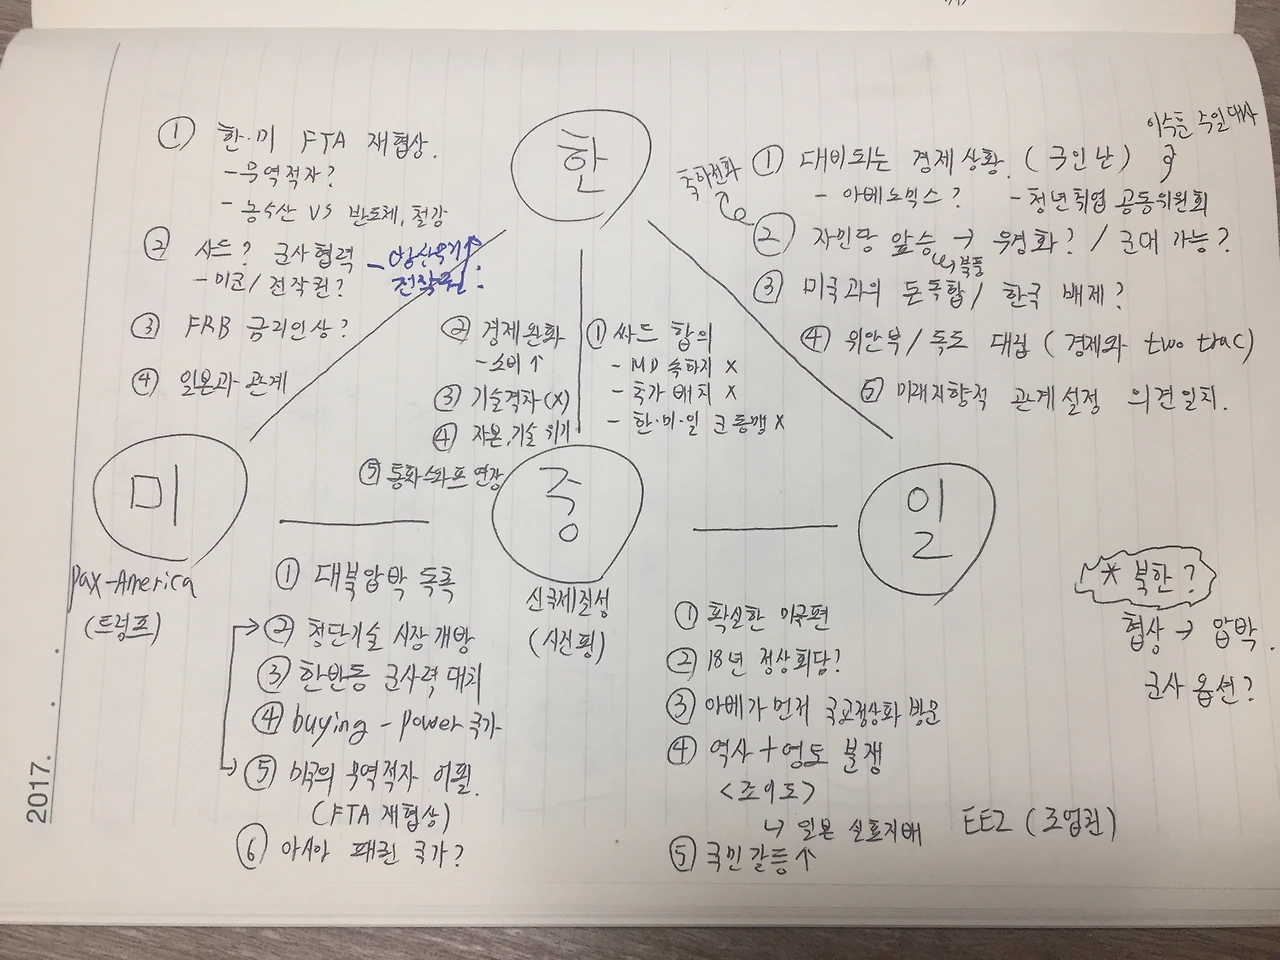 한
① 한·미 FTA 재협상.
- 무역적자?
- 농수산 VS 반도체, 철강
② 사드? 군사협력
- 미군/ 전작권?
- 방산무기↑
전작권.
③ FRB 금리인상?
④ 일본과 관계
이수훈 주일대사
① 대비되는 경제상황. (구인난)
- 아베노믹스? - 청년취업 공동위원회
축하전화
② 자민당 압승 → 우경화? / 군대 가능?
↳ 북풍
③ 미국과의 돈독함/ 한국 배제?
④ 위안부/ 독도 대립 (경제와 two trac)
⑤ 미래지향적 관계설정 의견일치.
② 경제완화
- 소비↑
③ 기술격차(X)
④ 자본, 기술 위기
⑤ 통화스와프 연장
① 싸드 합의
- MD 속하지 X
- 추가 배치 X
- 한·미·일 군 동맹 X
미
Pax-America
(트럼프)
중
신국제질서
(시진핑)
일
① 대북압박 독촉
② 첨단기술 시장 개방
③ 한반도 군사력 대치
④ buying - power 국가
⑤ 미국의 무역적자 어필.
(FTA 재협상)
⑥ 아시아 패권 국가?
① 확실한 미국편
② 18년 정상회담?
③ 아베가 먼저 국교정상화 방문
④ 역사 + 영토 분쟁
<조어도>
↳ 일본 실효지배
EEZ (조업권)
⑤ 국민 갈등↑
* 북한?
협상 → 압박.
군사 옵션?
2017.